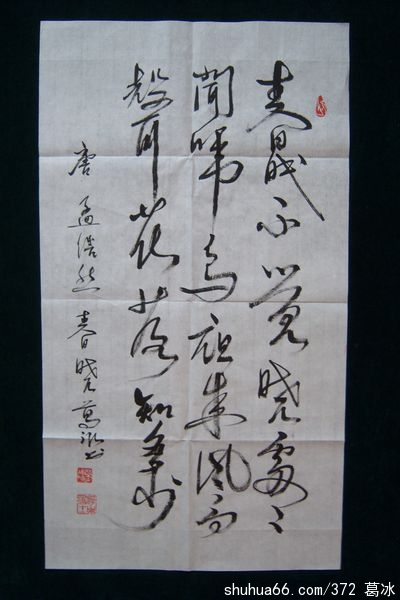 春眠不觉晓處々
聞啼鸟夜来风雨
聲花落知多少
唐 孟浩然 春晓 葛冰书
shuhua66.com/372 葛冰